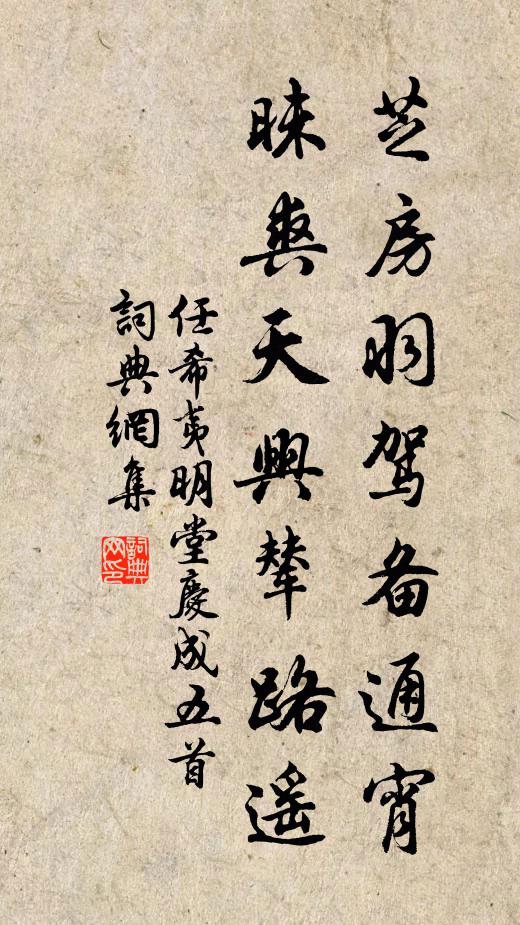 芝房羽駕备通宵
昧爽天興輦路遥
任希夷明堂慶成五首
詞典網集
詞典網印